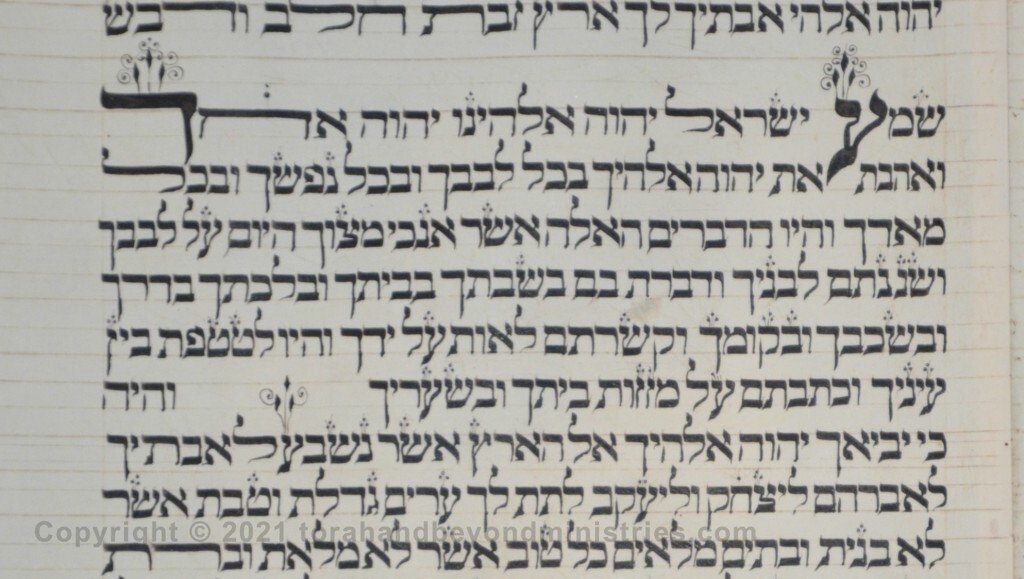 יהוה אלהי אבתיך לך ארץ זבת חלב ודבש
שמע ישראל יהוה אלהינו יהוה אחד
ואהבת את יהוה אלהיך בכל לבבך ובכל נפשך ובכל
מאדך והיו הדברים האלה אשר אנכי מצוך היום על לבבך
ושננתם לבניך ודברת בם בשבתך בביתך ובלכתך בדרך
ובשכבך ובקומך וקשרתם לאות על ידך והיו לטטפת בין
עיניך וכתבתם על מזזות ביתך ובשעריך והיה
כי יביאך יהוה אלהיך אל הארץ אשר נשבע לאבתיך
לאברהם ליצחק וליעקב לתת לך ערים גדלת וטבת אשר
Copyright © 2021 torahandbeyondministries.com
לא בנית ובתים מלאים כל טוב אשר לא מלאת וברת